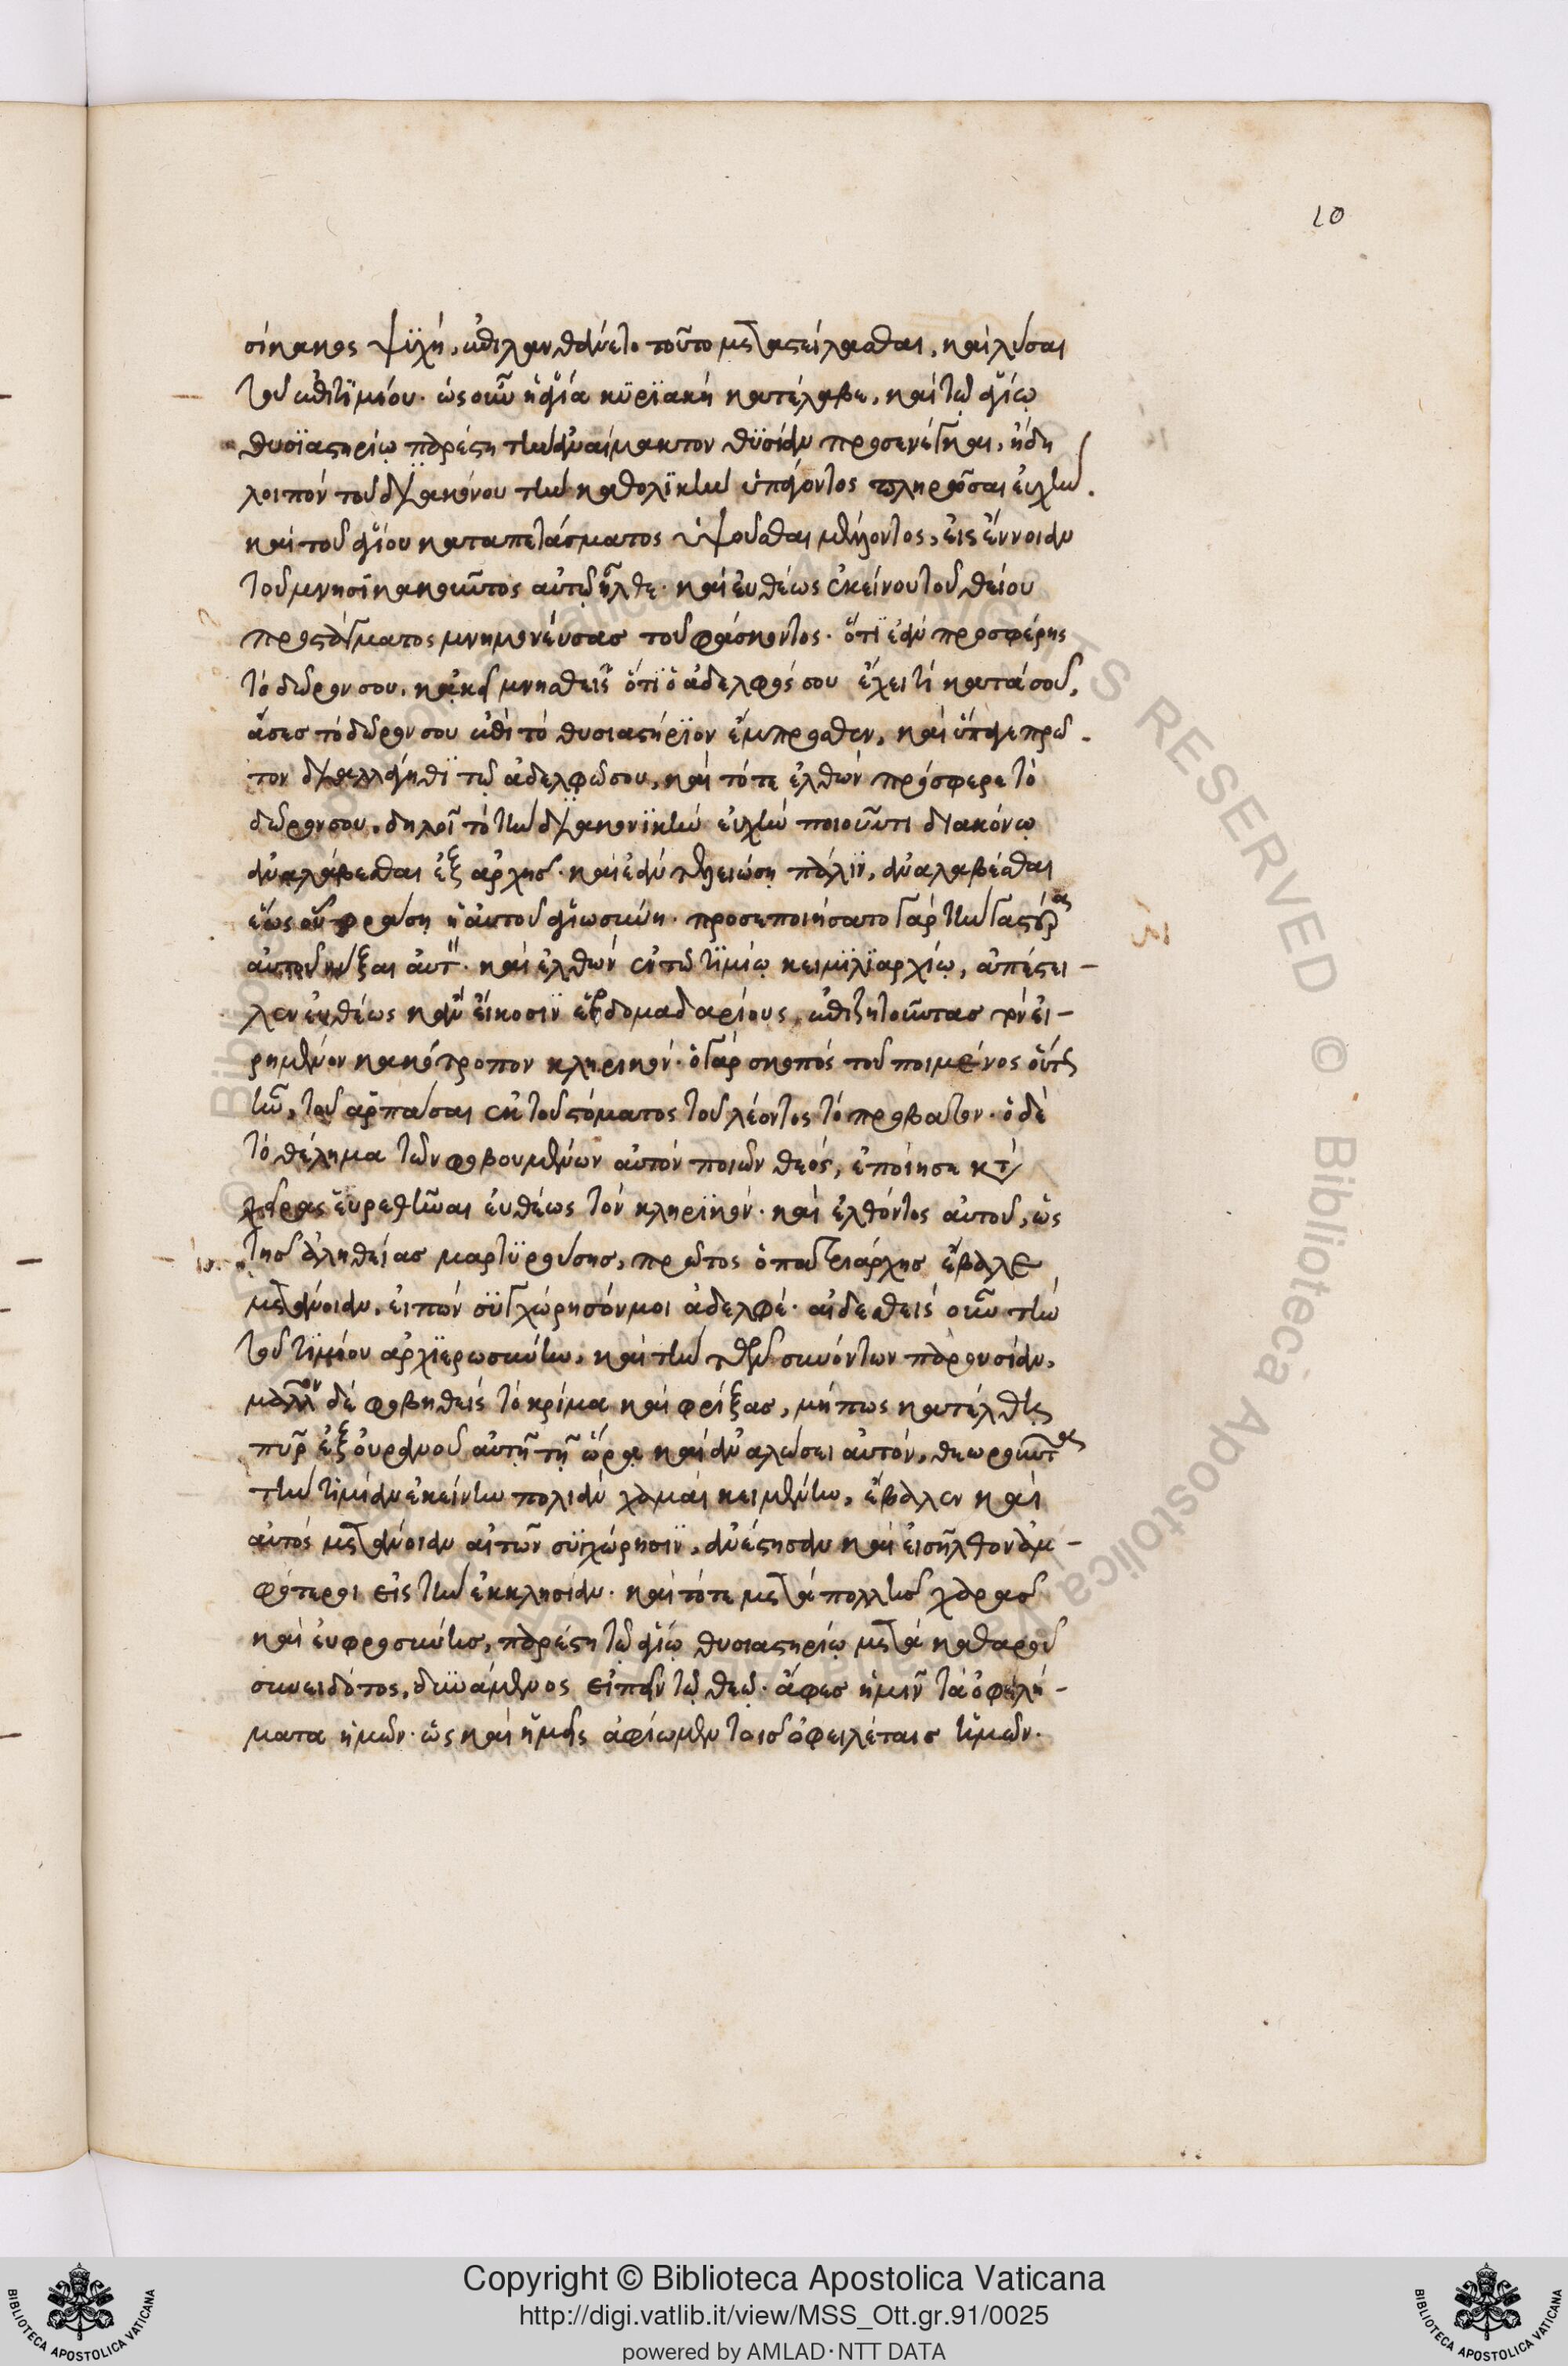 10
σίκακος ψϋχή, ἐπιλανθάνεται τοῦτο μεταστείλασθαι, καὶ λῦσαι
τοῦ ἐπιτϊμίου. ὡς οὖν ἡ ἁγία κϋρϊακή κατέλαβε, καὶ τῷ ἁγίῳ
θυσϊαστηρίῳ παρέστη τὴν ἀναίμακτον θϋσίαν προσενέγκαι, ἤδη
λοιπόν τοῦ διακόνου τὴν καθολϊκὴν ὑπάγοντος πληρῶσαι εὐχὴν.
καὶ τοῦ ἁγίου καταπετάσματος ὑψοῦσθαι μέλλοντος, εἰς ἔννοιαν
τοῦ μνησικακοῦντος αὐτῷ ἦλθε. καὶ εὐθέως ἐκείνου τοῦ θείου
προστάγματος μνημονεύσας τοῦ φάσκοντος. ὅτϊ ἐὰν προσφέρης
τὸ δῶρον σου, κἀκεῖ μνησθεῖς ὅτϊ ὁ ἀδελφός σου ἔχει τί κατά σοῦ,
ἄφες τὸ δῶρον σου ἐπὶ τὸ θυσιαστήρϊον ἔμπροσθεν, καὶ ὕπαγε πρῶ-
τον διαλλάγηθϊ τῷ ἀδελφῷ σου, καὶ τότε ἐλθών πρόσφερε τὸ
δῶρον σου. δηλοῖ τὸ τὴν διακονϊκὴν εὐχὴν ποιοῦντι διακόνῳ
ἀναλάβεσθαι ἐξ ἀρχῆς. καὶ ἐὰν τελειώση πάλϊν, ἀναλαβέσθαι
ἕως οὗ φράση ἡ αὐτοῦ ἁγιωσύνη. προσεποιήσατο γάρ τὴν γαστέρας
αὐτοῦ νύξαι αὐτ. καὶ ἐλθών ἐν τῷ τϊμίῳ κειμϊλϊαρχίῳ, ἀπέστει-
λεν εὐθέως κἂν εἴκοσϊν ἑβδομαδαρίους, ἐπιζητοῦντας τὸν εἰ-
ρημένον κακότροπον κληρικόν. ὁ γάρ σκοπός τοῦ ποιμένος οὗτος
ἦν, τοῦ ἁρπάσαι ἐκ τοῦ στόματος τοῦ λέοντος τὸ πρόβατον. ὁ δὲ
τὸ θέλημα τῶν φοβουμένων αὐτὸν ποιῶν θεός, ἐποίησε κτὶ
εὑρεθῆναι εὐθέως τὸν κληρϊκόν. καὶ ἐλθόντος αὐτοῦ, ὡς
τῆς ἀληθείας μαρτϋρούσης, πρῶτος ὁ πατριάρχης ἔβαλε
μετάνοιαν, εἰπὼν σϋγχώρησόν μοι ἀδελφέ. αἰδεσθεὶς οὖν τὴν
τοῦ τϊμίου ἀρχϊερωσύνην, καὶ τὴν τῶν συνόντων παρουσίαν,
μᾶλλον δὲ φοβηθεὶς τὸ κρίμα καὶ φρίξας, μήπως κατέλθῃ
πῦρ ἐξ οὐρανοῦ αὐτῇ τῇ ὥρᾳ καὶ ἀναλώσει αὐτόν, θεωροῦντος
τὴν τϊμίαν ἐκείνην πολιὰν χαμαὶ κειμένην, ἔβαλεν καὶ
αὐτός μετάνοιαν αἰτῶν σϋγχώρησϊν, ἀνέστησαν καὶ εἰσῆλθον ἀμ-
φότεροι εἰς τὴν ἐκκλησίαν. καὶ τότε μετὰ πολλῆς χαρᾶς
καὶ εὐφροσύνης, παρέστη τῷ ἁγίῳ θυσιαστηρίῳ μετὰ καθαροῦ
συνειδότος, δυνάμενος εἰπεῖν τῷ θεῷ. ἄφες ἡμῖν τὰ ὀφελή-
ματα ἡμῶν. ὡς καὶ ἡμεῖς ἀφίωμεν τοῖς ὀφειλέταις ἡμῶν.
Copyright © Biblioteca Apostolica Vaticana
http://digi.vatlib.it/view/MSS_Ott.gr.91/0025
powered by AMLAD·NTT DATA